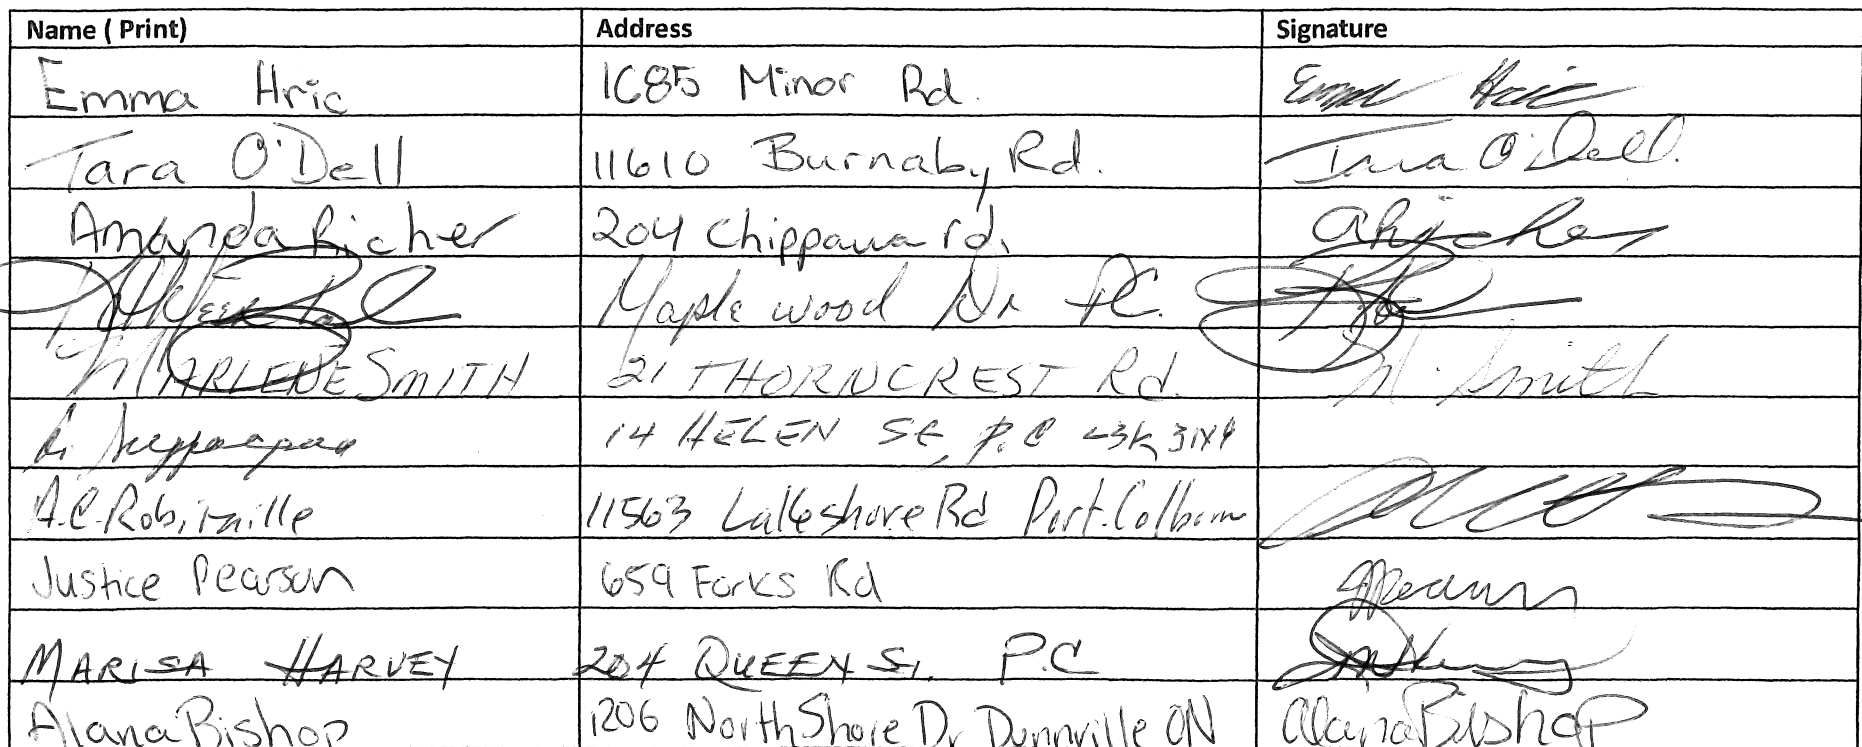 Name ( Print) Address Signature
Emma Hric 1685 Minor Rd. Emma Hric
Tara O'Dell 11610 Burnaby Rd. Tara O'Dell
Amanda Richer 204 Chippawa rd. ARicher
Kathleen Maplewood Dr PC.
MARLENE SMITH 21 THORNCREST Rd. M. Smith
14 HELEN St, P.C
A.C. Robitaille 11563 Lakeshore Rd Port Colborne
Justice Pearson 659 Forks Rd JPearson
MARISA HARVEY 204 QUEEN St. P.C MHarvey
Alana Bishop 1206 North Shore Dr Dunnville ON Alana Bishop